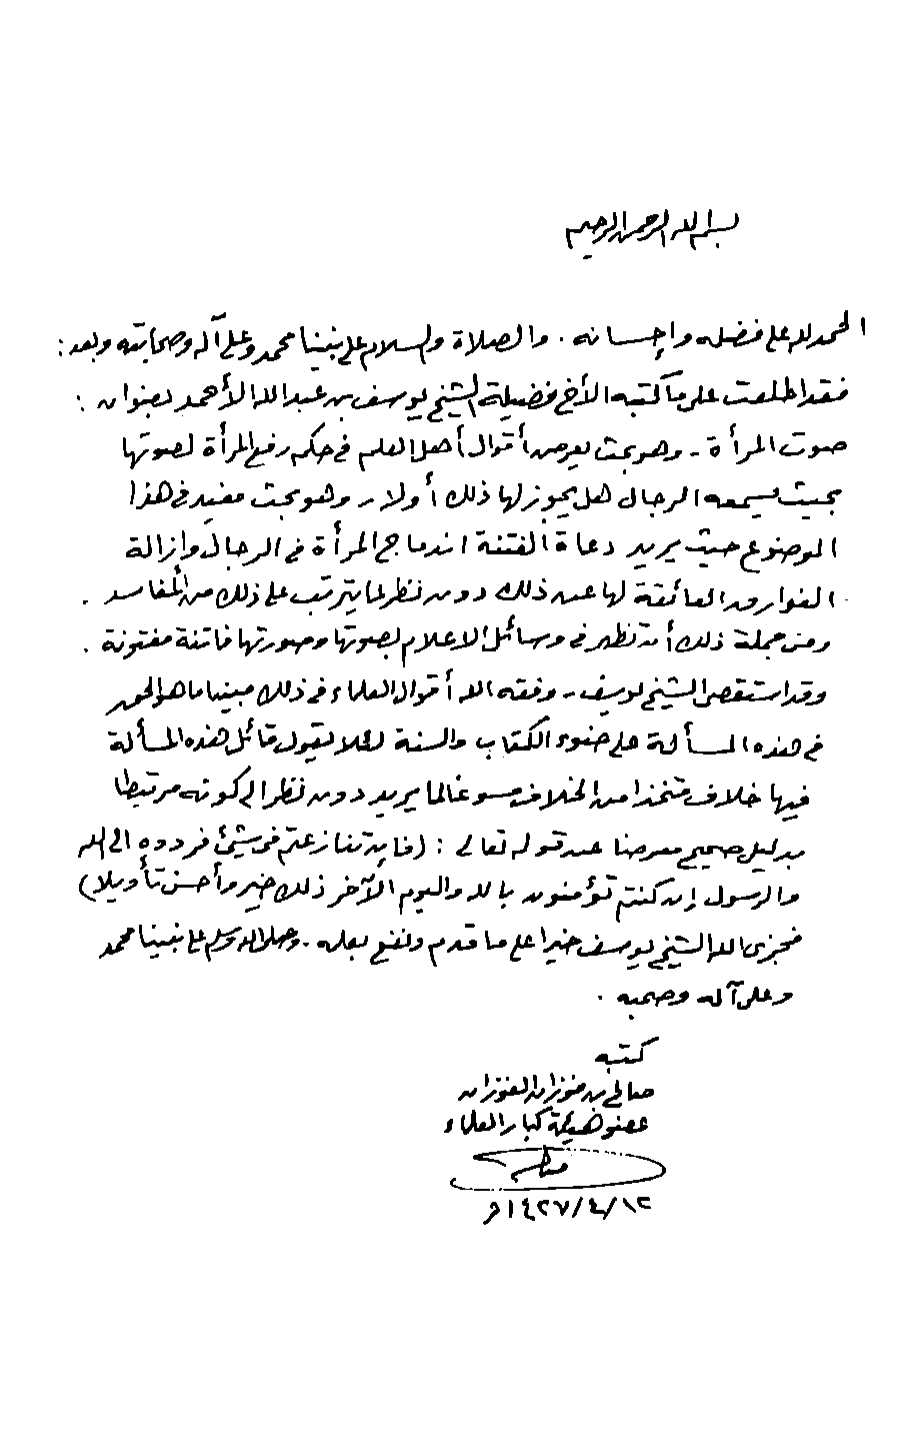 بسم الله الرحمن الرحيم
الحمد لله على فضله وإحسانه. والصلاة والسلام على نبينا محمد وعلى آله وصحابته وبعد:
فقد اطلعت على ما كتبه الأخ فضيلة الشيخ يوسف بن عبدالله الأحمد بعنوان:
صوت المرأة - وهو بحث يعرض أقوال أهل العلم في حكم رفع المرأة لصوتها
بحيث يسمعه الرجال هل يجوز لها ذلك أو لا - وهو بحث مفيد في هذا
الموضوع حيث يريد دعاة الفتنة اندماج المرأة في الرجال وإزالة
الفوارق العائقة لها عن ذلك دون نظر لما يترتب على ذلك من المفاسد.
ومن جملة ذلك أن تظهر في وسائل الاعلام بصوتها وصورتها فاتنة مفتونة.
وقد استقصى الشيخ يوسف - وفقه الله أقوال العلماء في ذلك مبينا ما هو الحق
في هذه المسألة على ضوء الكتاب والسنة لئلا يقول قائل هذه المسألة
فيها خلاف متخذا من الخلاف مسوغا لما يريد دون نظر الى كونه مرتبطا
بدليل صحيح معرضا عن قوله تعالى: (فإن تنازعتم في شيئ فردوه الى الله
والرسول إن كنتم تؤمنون بالله واليوم الآخر ذلك خير وأحسن تأويلا)
فجزى الله الشيخ يوسف خيرا على ما قدم ونفع بعلمه. وصلى الله وسلم على نبينا محمد
وعلى آله وصحبه.
كتبه
صالح بن فوزان الفوزان
عضو هيئة كبار العلماء
١٤٢٧/٤/١٢هـ